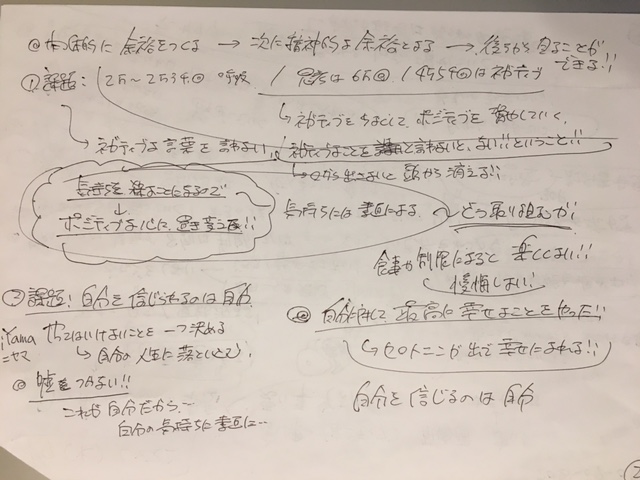 ◎体的に余裕をつくる → 次に精神的な余裕となる → 後ろから見ることができる!!
①課題: 2万〜2万5千回 呼吸 / 思考は6万回 / 4万5千回はネガティブ
↳ ネガティブを少なくして、ポジティブを増やしていく。
↳ ネガティブな言葉を言わない。ネガティブなことを言わないと、ない!!ということ!!
↳ 口から出さないと頭から消える!!
気持ちを染まることになるので
↓
ポジティブな心に置き変える!!
気持ちには素直になる 〜どう取り組むか!
食事や制限になると楽しくない!!
我慢しない!
②課題! 自分を信じられるのは自分
Yama やってはいけないことを一つ決める
=ヤマ ↳ 自分の人生に落とし込む
◎自分に対して最高に幸せなことをやった!!
↳ セロトニンが出て幸せになれる!!
◎嘘をつかない!!
これも自分だから、〜
自分の気持ちに素直に…
自分を信じるのは自分
2